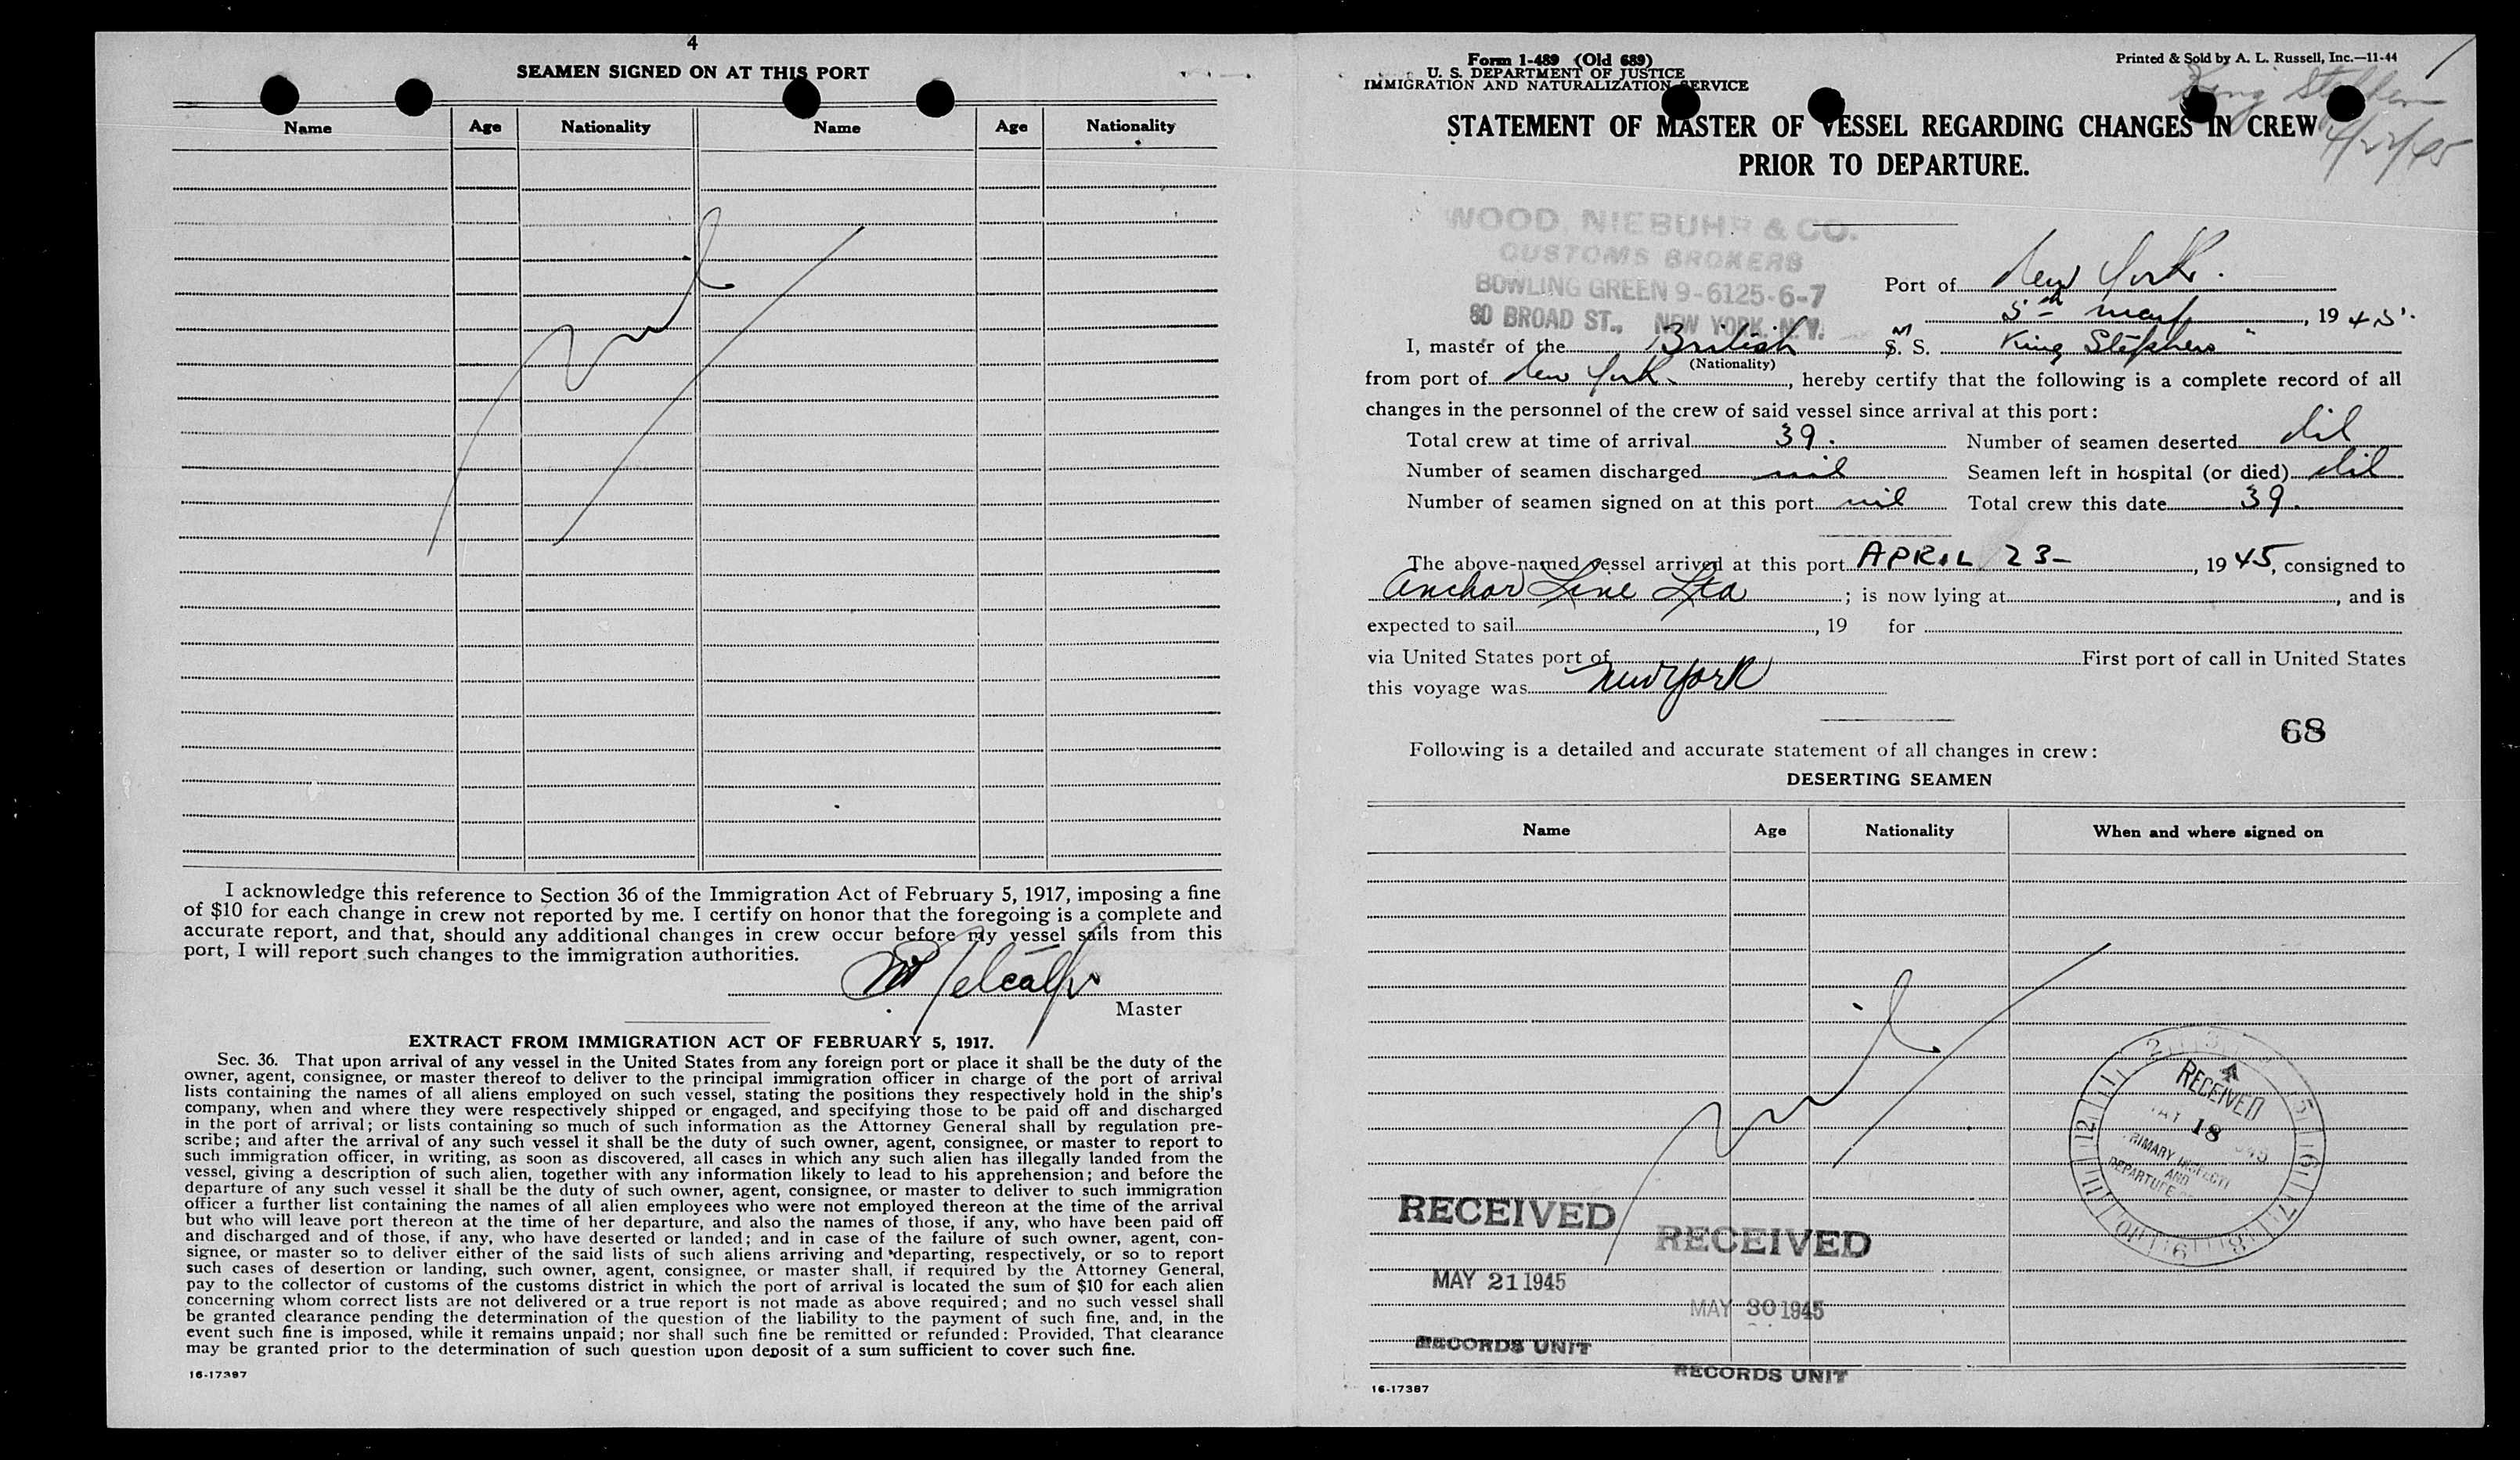 4
SEAMEN SIGNED ON AT THIS PORT
Name Age Nationality Name Age Nationality
nil
I acknowledge this reference to Section 36 of the Immigration Act of February 5, 1917, imposing a fine
of $10 for each change in crew not reported by me. I certify on honor that the foregoing is a complete and
accurate report, and that, should any additional changes in crew occur before my vessel sails from this
port, I will report such changes to the immigration authorities.
Metcalfe
Master
EXTRACT FROM IMMIGRATION ACT OF FEBRUARY 5, 1917.
Sec. 36. That upon arrival of any vessel in the United States from any foreign port or place it shall be the duty of the
owner, agent, consignee, or master thereof to deliver to the principal immigration officer in charge of the port of arrival
lists containing the names of all aliens employed on such vessel, stating the positions they respectively hold in the ship's
company, when and where they were respectively shipped or engaged, and specifying those to be paid off and discharged
in the port of arrival; or lists containing so much of such information as the Attorney General shall by regulation pre-
scribe; and after the arrival of any such vessel it shall be the duty of such owner, agent, consignee, or master to report to
such immigration officer, in writing, as soon as discovered, all cases in which any such alien has illegally landed from the
vessel, giving a description of such alien, together with any information likely to lead to his apprehension; and before the
departure of any such vessel it shall be the duty of such owner, agent, consignee, or master to deliver to such immigration
officer a further list containing the names of all alien employees who were not employed thereon at the time of the arrival
but who will leave port thereon at the time of her departure, and also the names of those, if any, who have been paid off
and discharged and of those, if any, who have deserted or landed; and in case of the failure of such owner, agent, con-
signee, or master so to deliver either of the said lists of such aliens arriving and departing, respectively, or so to report
such cases of desertion or landing, such owner, agent, consignee, or master shall, if required by the Attorney General,
pay to the collector of customs of the customs district in which the port of arrival is located the sum of $10 for each alien
concerning whom correct lists are not delivered or a true report is not made as above required; and no such vessel shall
be granted clearance pending the determination of the question of the liability to the payment of such fine, and, in the
event such fine is imposed, while it remains unpaid; nor shall such fine be remitted or refunded: Provided, That clearance
may be granted prior to the determination of such question upon deposit of a sum sufficient to cover such fine.
16-17387
Form 1-489 (Old 689)
U. S. DEPARTMENT OF JUSTICE
IMMIGRATION AND NATURALIZATION SERVICE
Printed & Sold by A. L. Russell, Inc.—11-44
King Stephen
STATEMENT OF MASTER OF VESSEL REGARDING CHANGES IN CREW
PRIOR TO DEPARTURE.
WOOD, NIEBUHR & CO.
CUSTOMS BROKERS
BOWLING GREEN 9-6125-6-7
80 BROAD ST., NEW YORK, N.Y.
Port of New York.
5th may, 1945.
I, master of the British M S. S. King Stephen
(Nationality)
from port of New York, hereby certify that the following is a complete record of all
changes in the personnel of the crew of said vessel since arrival at this port:
Total crew at time of arrival 39. Number of seamen deserted Nil
Number of seamen discharged nil Seamen left in hospital (or died) Nil
Number of seamen signed on at this port nil Total crew this date 39.
The above-named vessel arrived at this port APRIL 23-, 1945, consigned to
Anchor Line Ltd; is now lying at, and is
expected to sail, 19 for
via United States port of First port of call in United States
this voyage was New York
68
Following is a detailed and accurate statement of all changes in crew:
DESERTING SEAMEN
Name Age Nationality When and where signed on
nil
RECEIVED
MAY 18 1945
PRIMARY INSPECTI
AND
DEPARTURE
RECEIVED
MAY 21 1945
RECORDS UNIT
RECEIVED
MAY 30 1945
RECORDS UNIT
16-17387